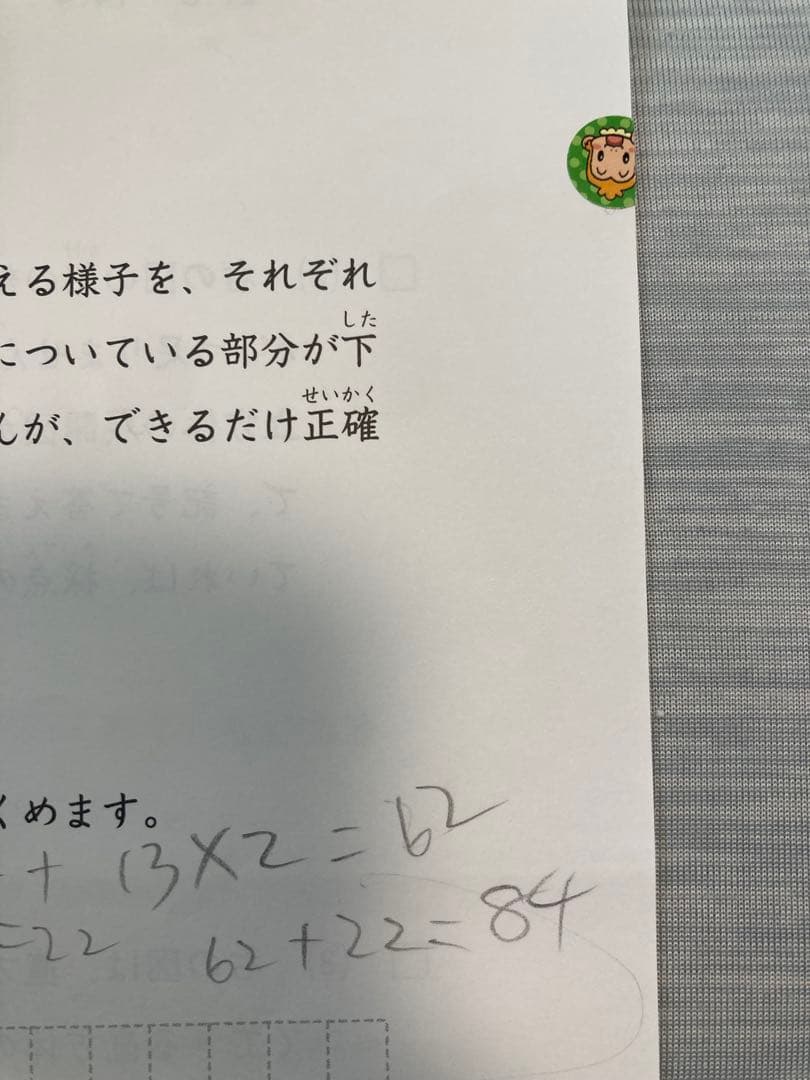 える様子を、それぞれ
した
についている部分が下
せいかく
んが、できるだけ正確
くめます。
+ 13×2=62
=22 62+22=84